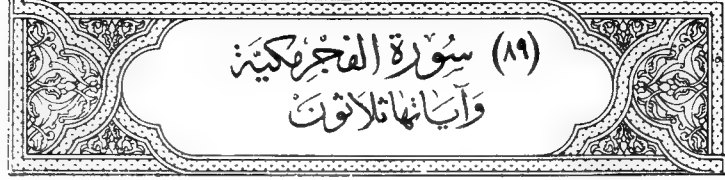 (٨٩) سُورَة الفَجْرِ مَكيَّة
وَآيَاتهَا ثلَاثونَ